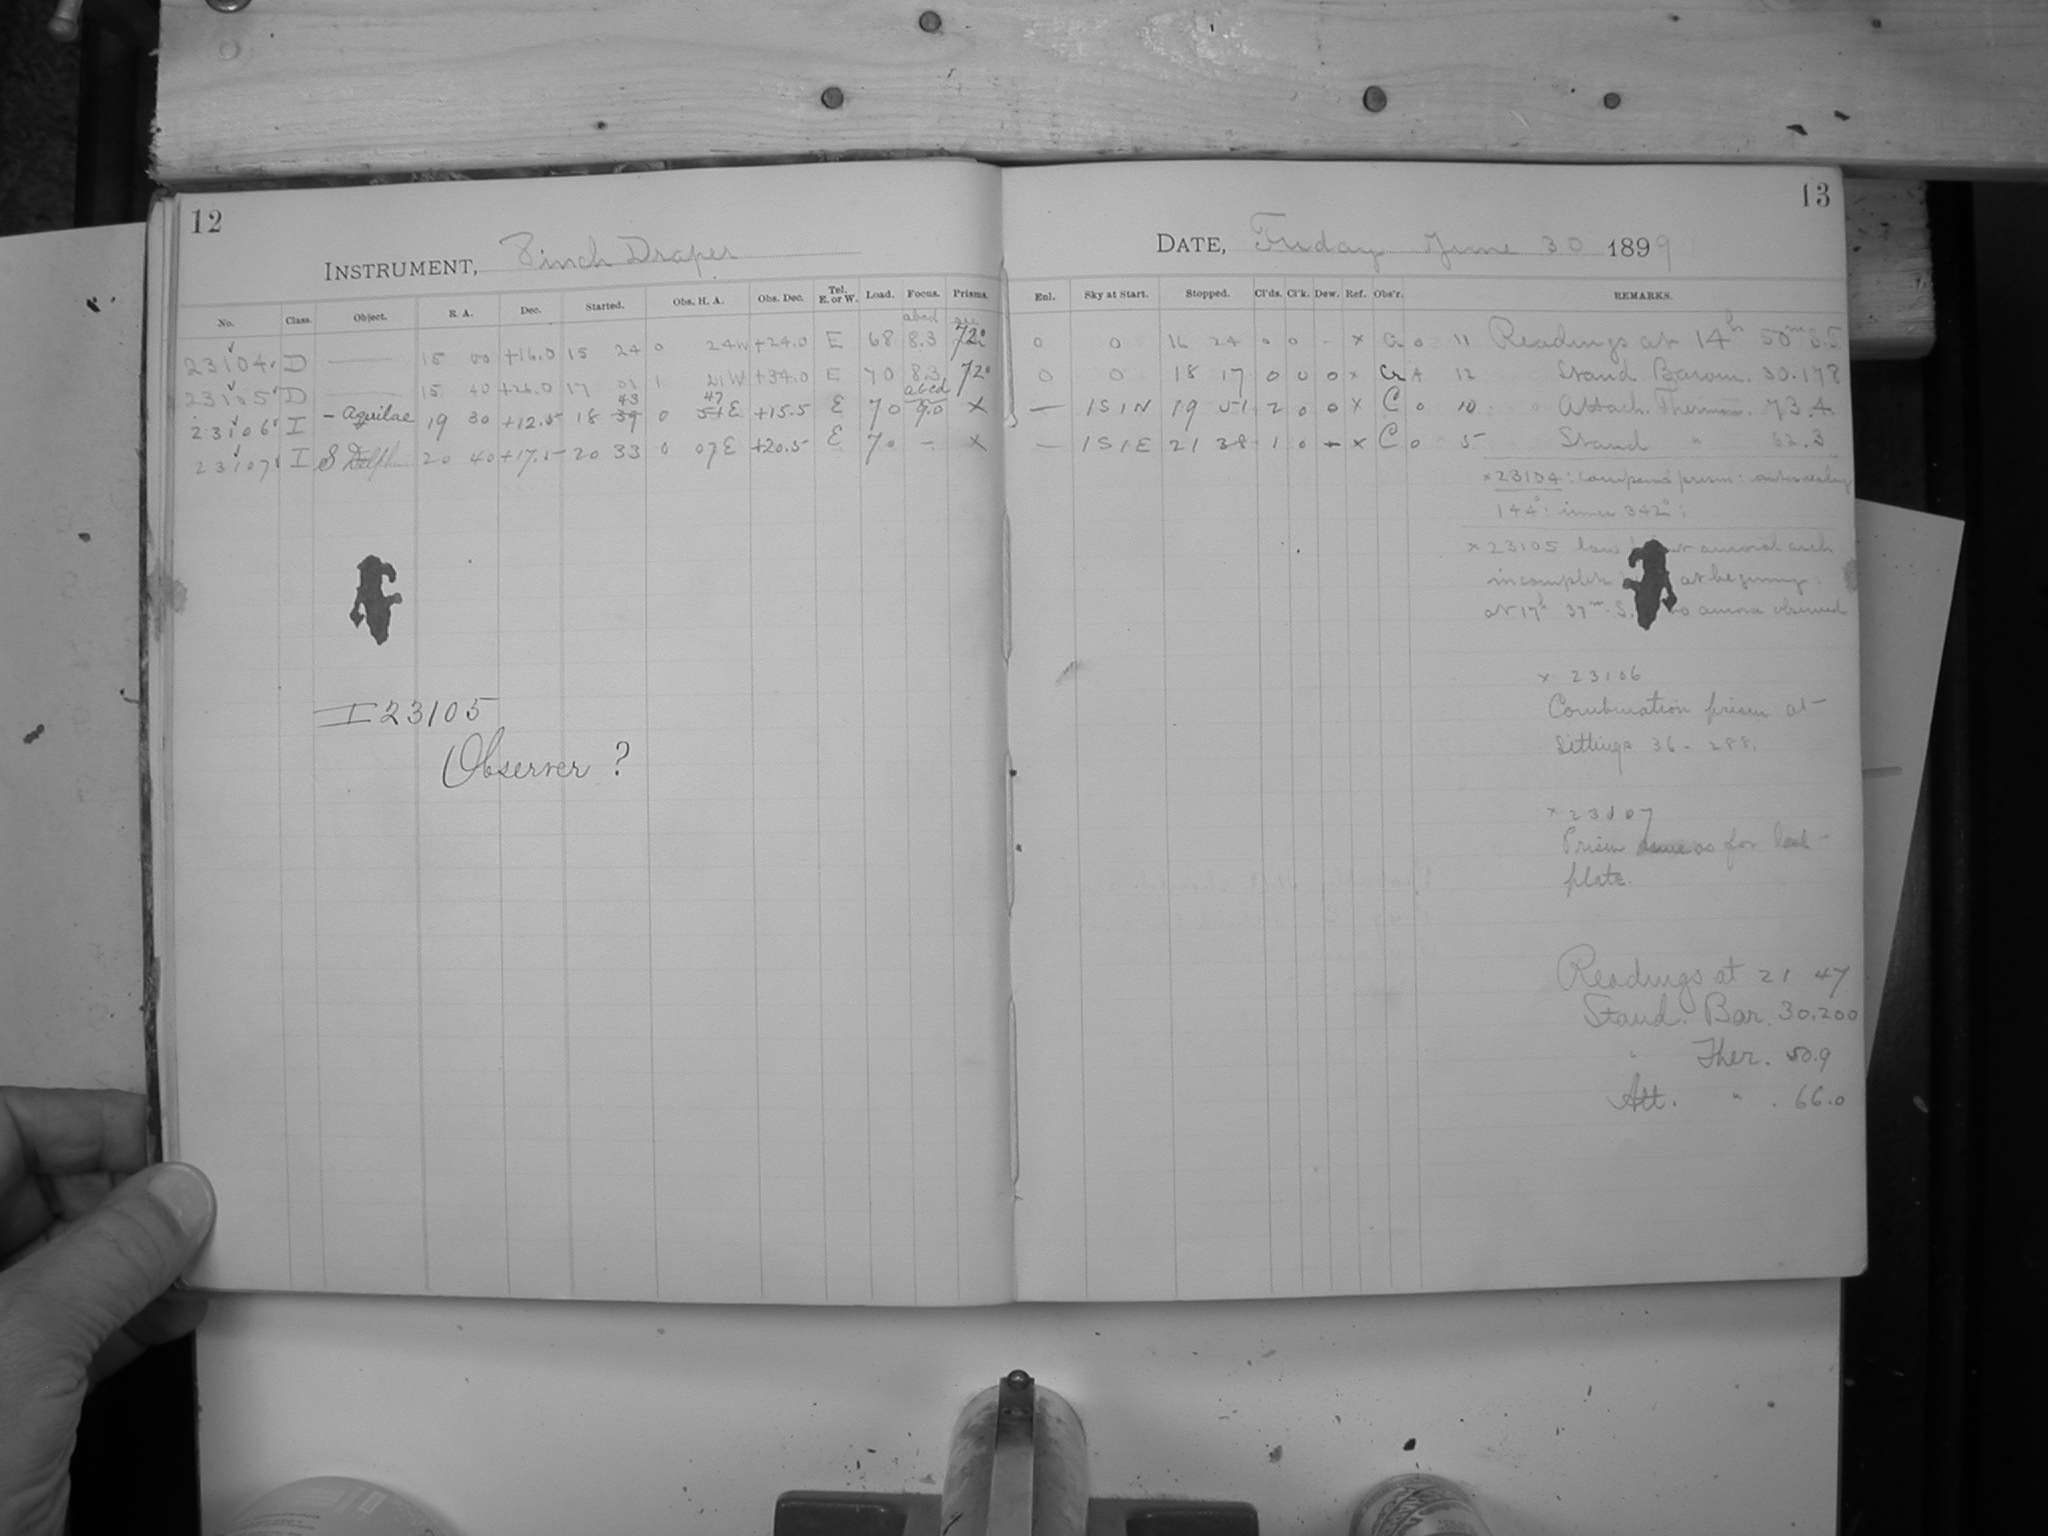 12
INSTRUMENT, 8 inch Draper
No. Class. Object. R. A. Dec. Started. Obs. H. A. Obs. Dec. Tel. E. or W. Load. Focus. Prisms.
abcd
23104 D — 15 00 +16.0 15 24 0 24W +24.0 E 68 8.3 72°
23105 D — 15 40 +26.0 17 01 1 21W +34.0 E 70 8.3 72°
43 47 abcd
23106 I - Aquilae 19 30 +12.5 18 39 0 51E +15.5 E 70 9.0 X
23107 I S Delphini 20 40 +17.5 20 33 0 07E +20.5 E 70 - X
I 23105
Observer ?
13
DATE, Friday June 30 1899
Enl. Sky at Start. Stopped. Cl'ds. Cl'k. Dew. Ref. Obs'r. REMARKS.
0 0 16 24 0 0 - x Cr 0 11 Readings at 14h 50m S.T.
0 0 18 17 0 0 0 x Cr A 12 Stand Barom. 30.178
— 1S1N 19 51 2 0 0 x C 0 10 Attach. Thermom. 73.4
— 1S1E 21 38 1 0 - x C 0 5 Stand " 62.3
x 23104: compound prism: outer reading
144°: inner 342°:
x 23105 low auroral arch
incomplete at beginning:
at 17h 37m S. no aurora observed
x 23106
Combination prism at
Settings 36 - 288.
x 23107
Prism same as for last
plate.
Readings at 21 47
Stand. Bar. 30.200
" Ther. 50.9
Att. " . 66.0